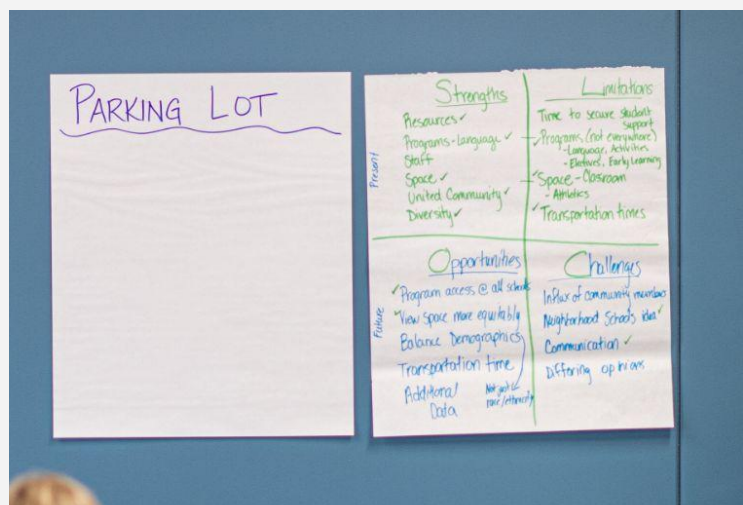 PARKING LOT
Strengths
Resources ✓
Programs - Language ✓
Staff
Space ✓
United Community ✓
Diversity ✓
Present
Limitations
Time to secure student
support
✓ Programs (not everywhere)
- Language, Activities
- Electives, Early Learning
✓ Space - Classroom
- Athletics
✓ Transportation times
Opportunities
✓ Program access @ all schools
✓ View space more equitably
Balance Demographics
Transportation time
Additional
Data
Not just
race/ethnicity
Future
Challenges
Influx of community members
Neighborhood Schools idea ✓
Communication ✓
Differing opinions